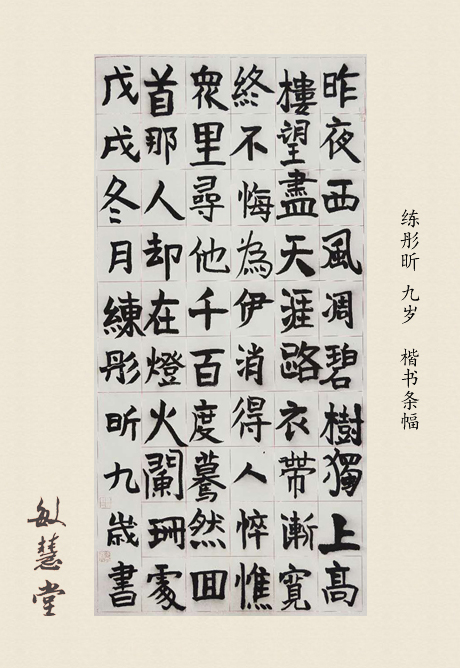 练彤昕 九岁 楷书条幅
昨夜西風凋碧樹獨上高
樓望盡天涯路衣帶漸寬
終不悔為伊消得人悴憔
衆里尋他千百度驀然回
首那人却在燈火闌珊處
戊戌冬月練彤昕九歲書
敏慧堂